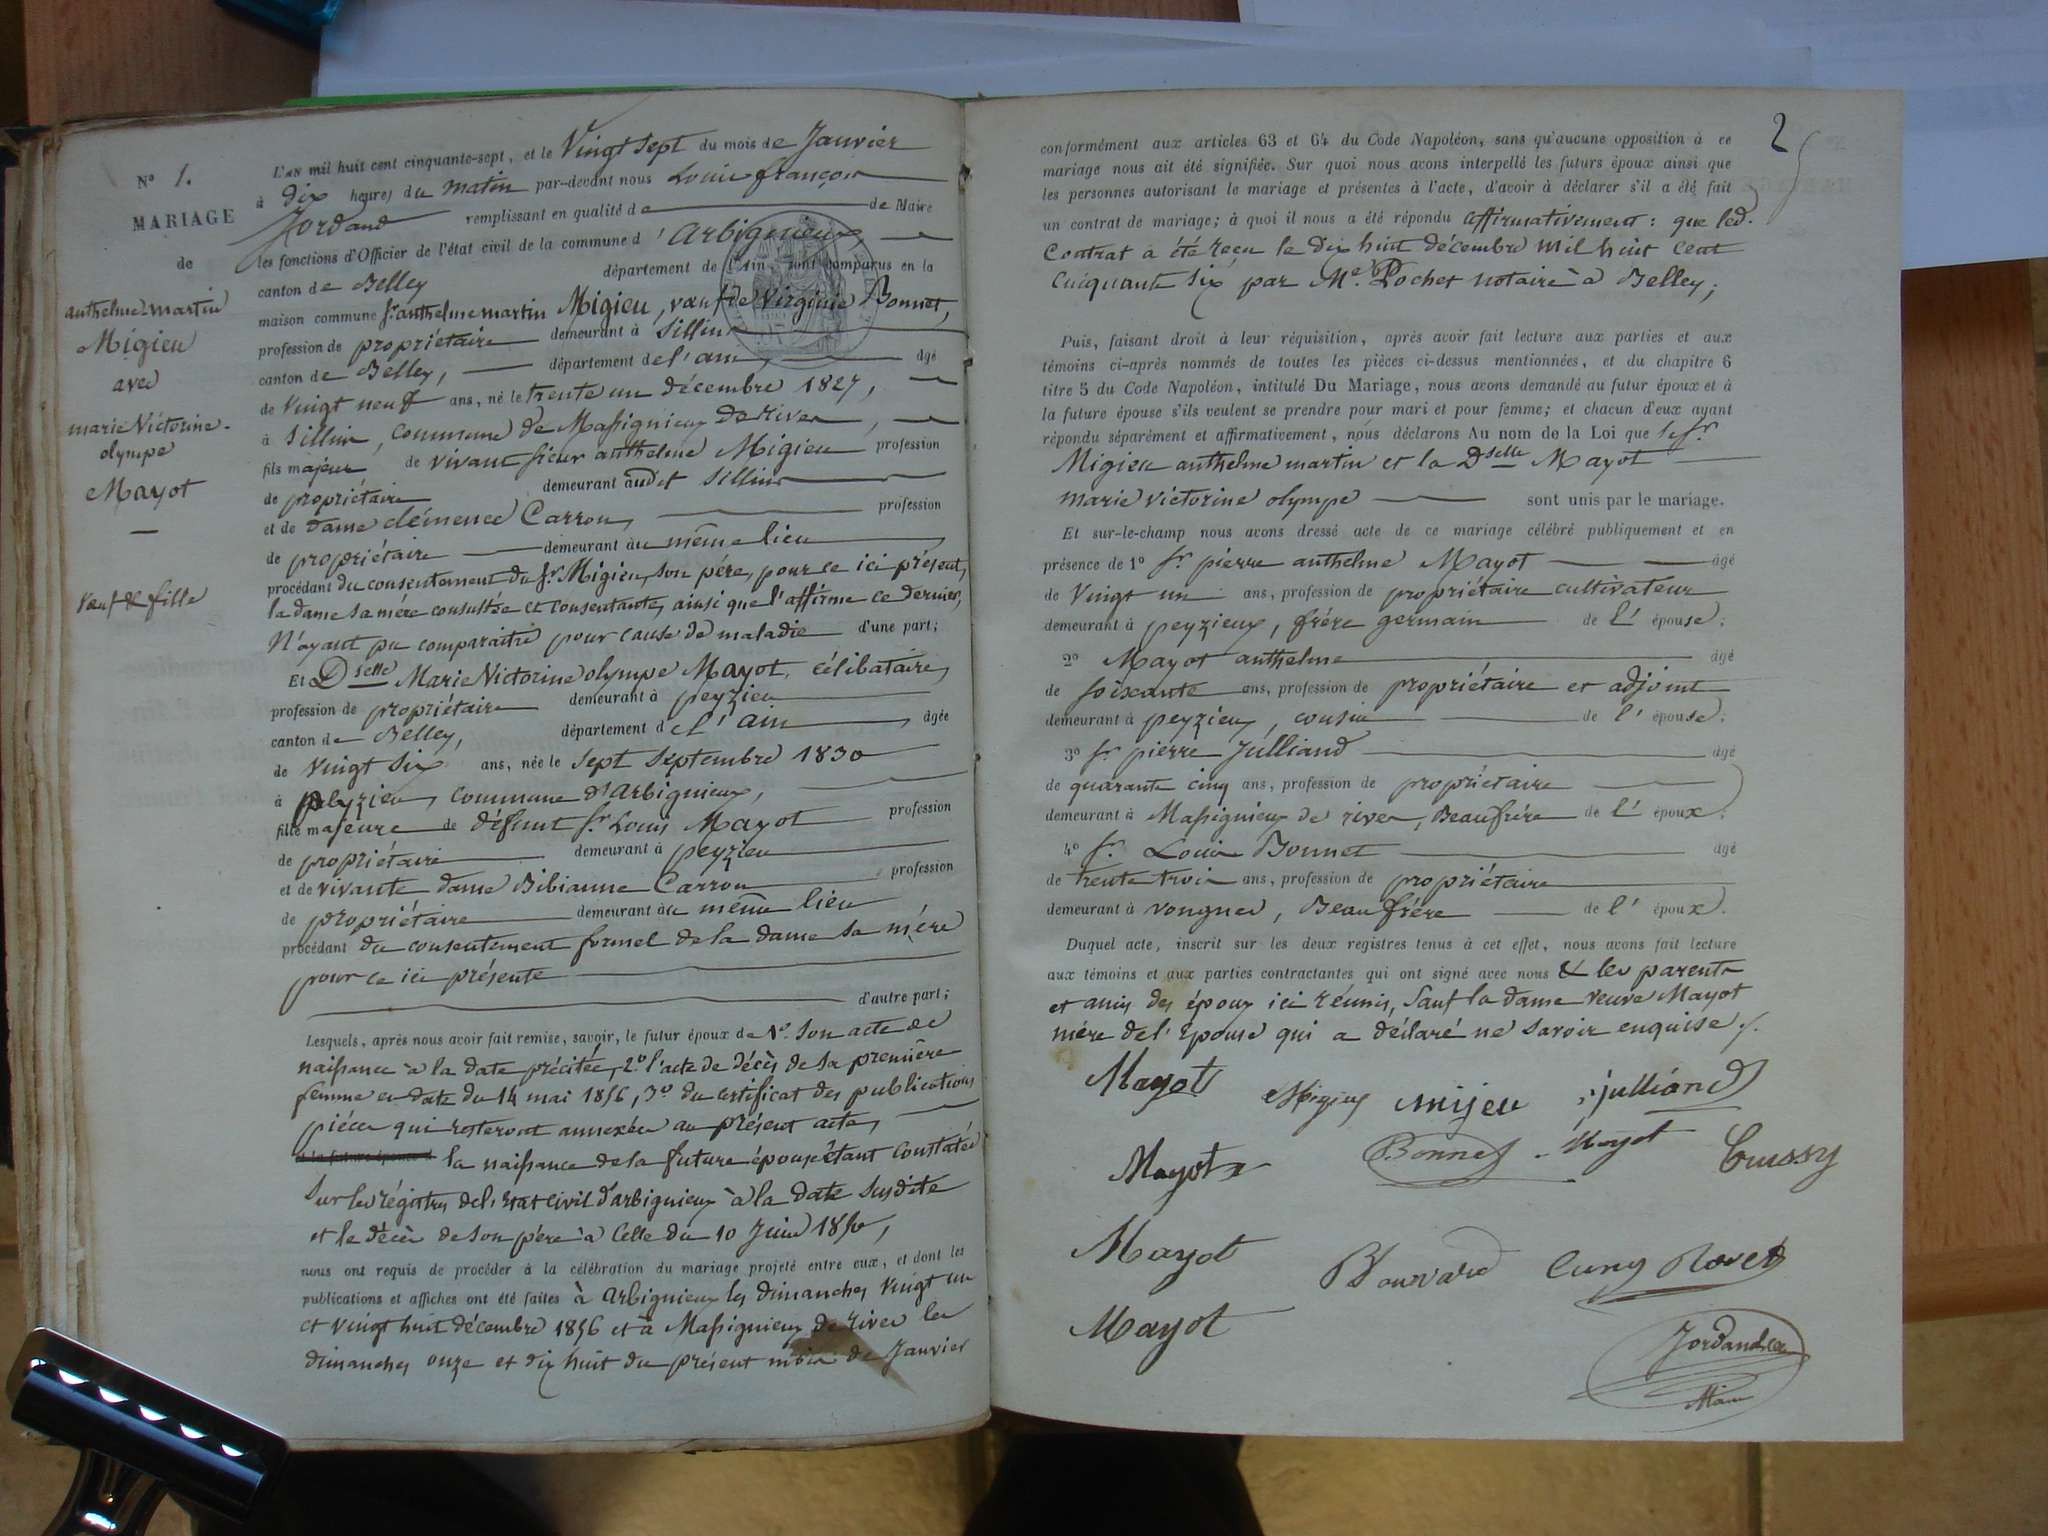 N° 1.
MARIAGE
de
anthelme-martin
Migieu
avec
marie Victorine-
olympe
Mayot
veuf & fille
L'an mil huit cent cinquante-sept, et le Vingt sept du mois de Janvier
à dix heures du matin par-devant nous Louis françois
Jordand remplissant en qualité de de Maire
les fonctions d'Officier de l'état civil de la commune d'Arbignieux,
canton de Belley département de l'Ain sont comparus en la
maison commune Sr. anthelme martin Migieu, veuf de Virginie Bonnet,
profession de propriétaire demeurant à Sillin
canton de Belley, département de l'ain, âgé
de vingt neuf ans, né le trente un décembre 1827,
à Sillin, commune de Massignieux de rives,
fils majeur de vivant sieur anthelme Migieu profession
de propriétaire demeurant audit Sillin
et de dame clémence Carron, profession
de propriétaire demeurant au même lieu
procédant du consentement du Sr. Migieu, son père, pour ce ici présent,
la dame sa mère consultée et consentante, ainsi que l'affirme ce dernier,
N'ayant pu comparaitre pour cause de maladie d'une part;
Et Dselle Marie Victorine olympe Mayot, célibataire,
profession de propriétaire demeurant à peyzieu
canton de Belley, département de l'ain, âgée
de vingt six ans, née le sept septembre 1830
à peyzieu, commune d'Arbignieux,
fille majeure de défunt Sr. Louis Mayot profession
de propriétaire demeurant à peyzieu
et de vivante dame Bibianne Carron profession
de propriétaire demeurant au même lieu
procédant du consentement formel de la dame sa mère
pour ce ici présente
d'autre part;
Lesquels, après nous avoir fait remise, savoir, le futur époux de 1° son acte de
naissance à la date précitée, 2° l'acte de décès de sa première
femme en date du 14 mai 1856, 3° du certificat des publications
pièces qui resteront annexées au présent acte,
la naissance de la future épouse étant constatée
sur les régistres de l'état civil d'arbignieux à la date susdite
et le décès de son père à celle du 10 Juin 1850,
nous ont requis de procéder à la célébration du mariage projeté entre eux, et dont les
publications et affiches ont été faites à Arbignieux les dimanches vingt un
et vingt huit décembre 1856 et à Massignieux de rives les
dimanches onze et dix huit du présent mois de Janvier
2
conformément aux articles 63 et 64 du Code Napoléon, sans qu'aucune opposition à ce
mariage nous ait été signifiée. Sur quoi nous avons interpellé les futurs époux ainsi que
les personnes autorisant le mariage et présentes à l'acte, d'avoir à déclarer s'il a été fait
un contrat de mariage; à quoi il nous a été répondu affirmativement: que led.
Contrat a été reçu le dix huit décembre mil huit cent
cinquante six par Me. Pochet notaire à Belley;
Puis, faisant droit à leur réquisition, après avoir fait lecture aux parties et aux
témoins ci-après nommés de toutes les pièces ci-dessus mentionnées, et du chapitre 6
titre 5 du Code Napoléon, intitulé Du Mariage, nous avons demandé au futur époux et à
la future épouse s'ils veulent se prendre pour mari et pour femme; et chacun d'eux ayant
répondu séparément et affirmativement, nous déclarons Au nom de la Loi que le Sr.
Migieu anthelme martin et la Dselle Mayot
marie victorine olympe sont unis par le mariage.
Et sur-le-champ nous avons dressé acte de ce mariage célébré publiquement et en
présence de 1° Sr. pierre anthelme Mayot âgé
de Vingt un ans, profession de propriétaire cultivateur
demeurant à peyzieux, frère germain de l'épouse;
2° Mayot anthelme âgé
de soixante ans, profession de propriétaire et adjoint
demeurant à peyzieu, cousin de l'épouse;
3° Sr. pierre Julliand âgé
de quarante cinq ans, profession de propriétaire
demeurant à Massignieux de rives, Beaufrère de l'époux;
4° Sr. Louis Bonnet âgé
de trente trois ans, profession de propriétaire
demeurant à vongnes, Beaufrère de l'époux.
Duquel acte, inscrit sur les deux registres tenus à cet effet, nous avons fait lecture
aux témoins et aux parties contractantes qui ont signé avec nous & les parents
et amis des époux ici réunis, sauf la dame veuve Mayot
mère de l'épouse qui a déclaré ne savoir enquise ./.
Mayot Migieu mijeu Julliand
Mayot Bonnet Mayot Cuissy
Mayot Bouvard Cuny Rovet
Mayot
Jordand
Maire